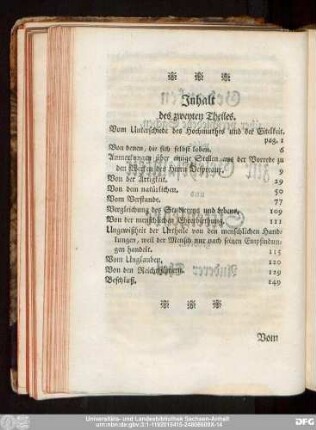 Inhalt
des zweyten Theiles.
Vom Unterschiede des Hochmuthes und der Eitelkeit.
pag. 1
Von denen, die sich selbst loben. 6
Anmerkungen über einige Stellen aus der Vorrede zu
den Werken des Herrn 9
Von der Arrigkeit. 29
Von dem natürlichen. 50
Vom Verstande. 77
Vergleichung des Stadt und lebens. 109
Von der menschlichen 111
Ungewißheit der Urtheile von den menschlichen Hand-
lungen, weil der Mensch nur nach seinen Empfindun-
gen handelt. 115
Vom Unglauben. 120
Von den Reichthümern. 129
Beschluß. 149
Vom
Universitäts- und Landesbibliothek Sachsen-Anhalt
DFG